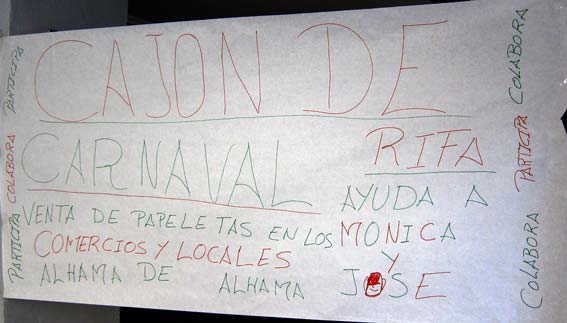 CAJON DE
CARNAVAL
RIFA
VENTA DE PAPELETAS EN LOS
COMERCIOS Y LOCALES
ALHAMA DE ALHAMA
AYUDA A
MONICA
Y
JOSE
PARTICIPA COLABORA PARTICIPA
COLABORA PARTICIPA COLABORA